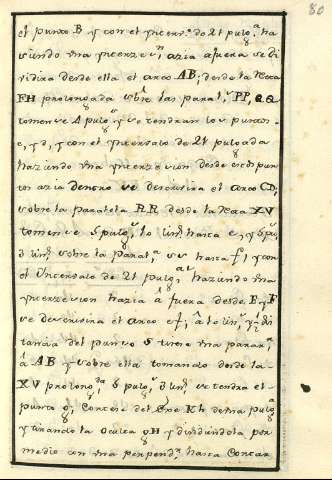 80
el punto B y con el yntervº de 21 pulgª ha
siendo una ynterzecⁿ, azia afuera se di
vidira desde ella el arco AB; desde la Recta
FH prolongada sobre las paralˢ PP, QQ
tomense 4 pulgˢ y se tendran los puntos
c, y d, y con el yntervalo de 21 pulgada
haziendo una ynterzecion desde estos pun
tos azia dentro se descrivira el arco CD,
sobre la paralela RR desde la Recta XV
tomense 5 pulgˢ 10 linˢ hasta e, y 6 pulˢ
3 linˢ sobre la paralª SS hasta f, y con
el yntervalo de 21 pulgªˢ, haziendo una
ynterzecion hazia á fuera desde E y F
se descrivira el arco ef; á 10 linˢ y ½ di
tancia del punto S tirese una paralª
á AB y sobre ella tomando desde la
XV prolongᵈª 6 pulgˢ 3 linˢ se tendra el
punto g; Cortese del Exe Kh de una pulgª
y tirando la oculta gH y dividiendola por
medio con una perpendʳ hasta Cortar